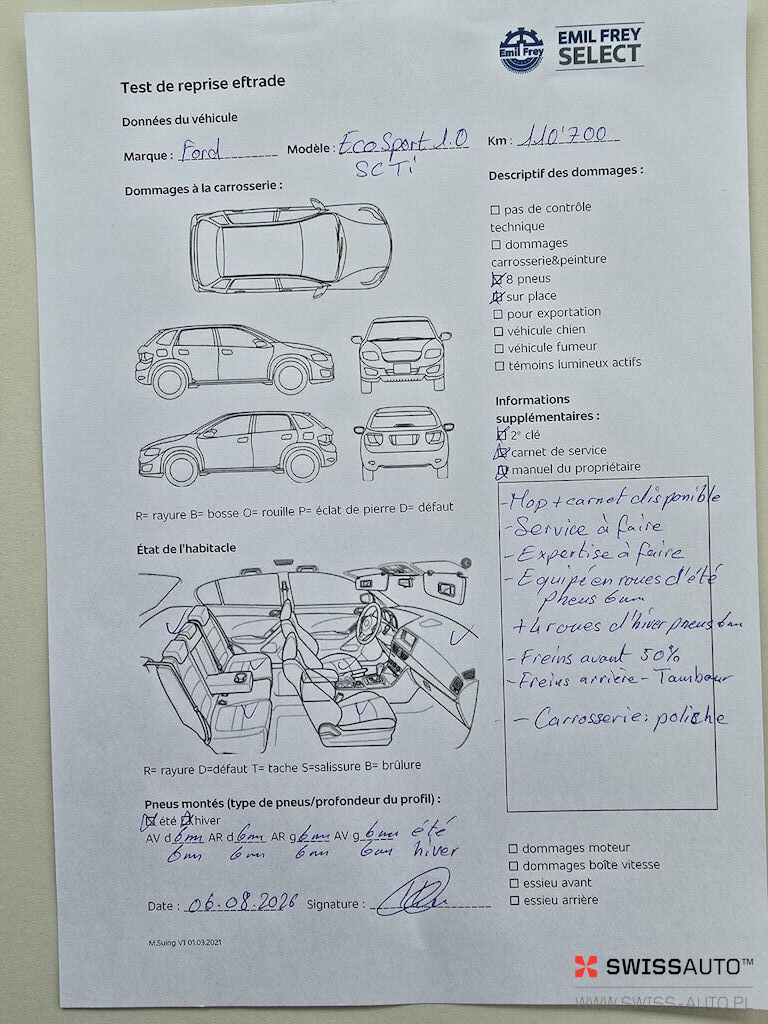 Emil Frey
EMIL FREY
SELECT
Test de reprise eftrade
Données du véhicule
Marque : Ford Modèle : EcoSport 1.0 Km : 110'700
SCTi
Dommages à la carrosserie :
Descriptif des dommages :
pas de contrôle
technique
dommages
carrosserie&peinture
8 pneus
sur place
pour exportation
véhicule chien
véhicule fumeur
témoins lumineux actifs
Informations
supplémentaires :
2e clé
carnet de service
manuel du propriétaire
R= rayure B= bosse O= rouille P= éclat de pierre D= défaut
- Mop + carnet disponible
- Service à faire
- Expertise à faire
- Equipé en roues d'été
pneus 6mm
+ 4 roues d'hiver pneus 6mm
- Freins avant 50%
- Freins arrière - Tambour
- Carrosserie: poliche
État de l'habitacle
R= rayure D=défaut T= tache S=salissure B= brûlure
Pneus montés (type de pneus/profondeur du profil) :
été hiver
AV d 6mm AR d 6mm AR g 6mm AV g 6mm été
6mm 6mm 6mm 6mm hiver
Date : 06.08.2026 Signature :
dommages moteur
dommages boîte vitesse
essieu avant
essieu arrière
M.Suing V1 01.03.2021
SWISSAUTO™
WWW.SWISS-AUTO.PL